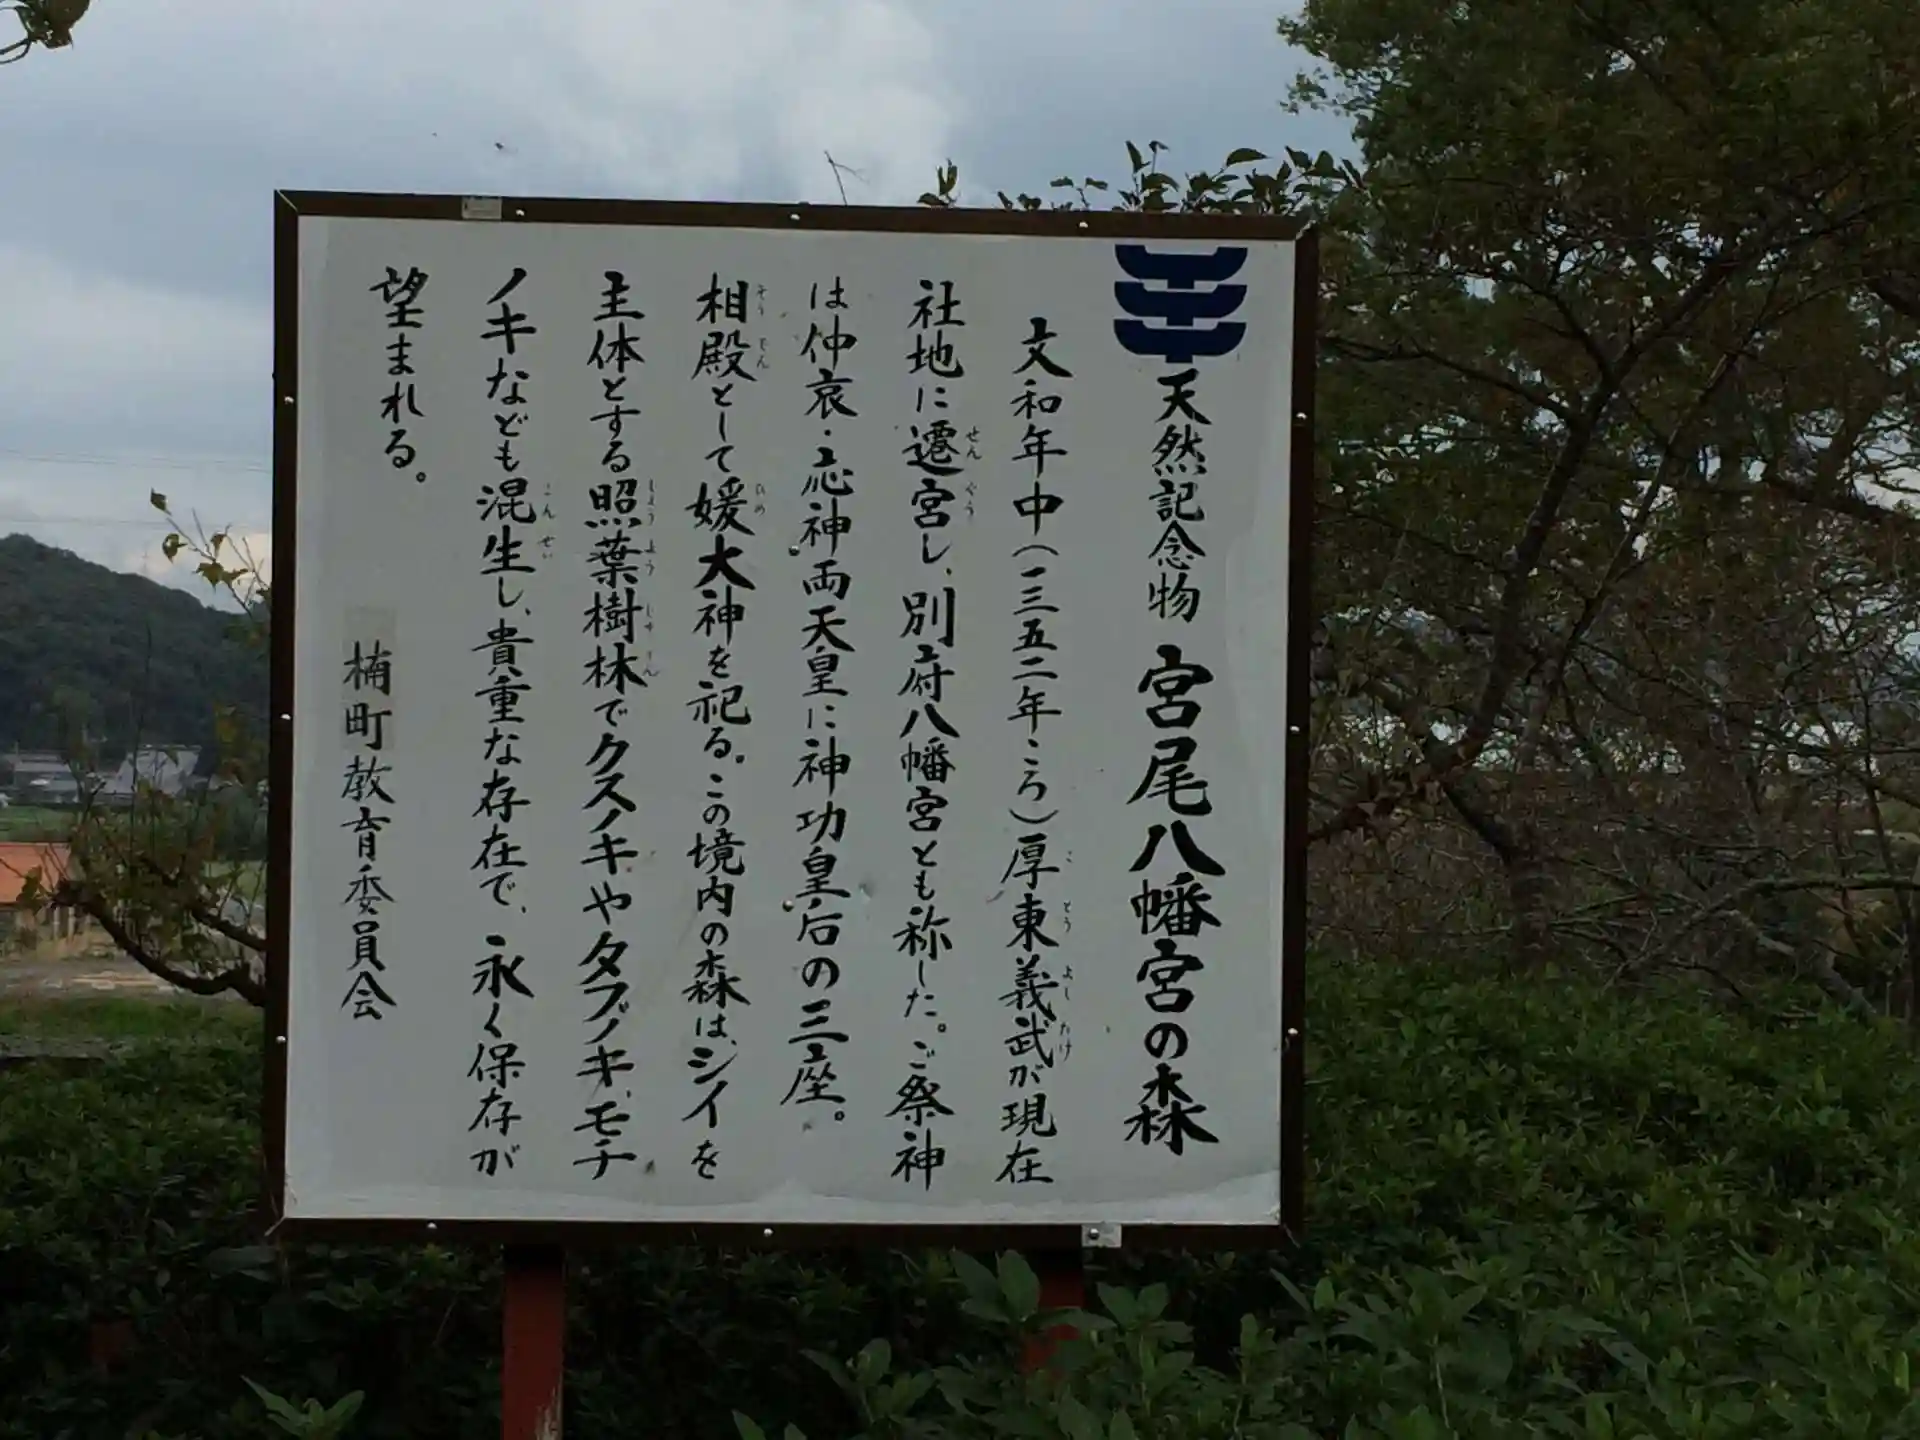 天然記念物 宮尾八幡宮の森
文和年中（一三五二年ころ）厚東義武が現在
社地に遷宮し、別府八幡宮とも称した。ご祭神
は仲哀・応神両天皇に神功皇后の三座。
相殿として媛大神を祀る。この境内の森は、シイを
主体とする照葉樹林でクスノキやタブノキ、モチ
ノキなども混生し、貴重な存在で、永く保存が
望まれる。
楠町教育委員会